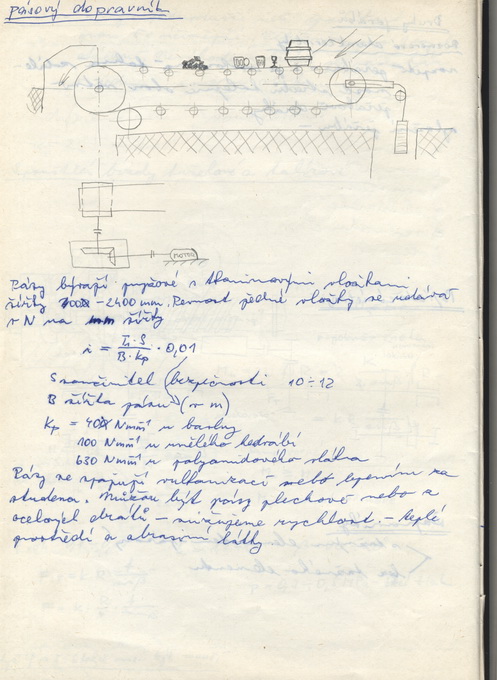 pásový dopravník
motor
Pásy bývají pryžové s tkaninovými vložkami
šířky 300 - 2400 mm. Pevnost jedné vložky se udává
v N na mm šířky
i = T₁ · S / B · Kp · 0,01
S součinitel bezpečnosti 10 ÷ 12
B šířka pásu (v m)
Kp = 40 Nmm⁻¹ u bavlny
100 Nmm⁻¹ u umělého hedvábí
630 Nmm⁻¹ u polyamidového vlákna
Pásy se spojují vulkanizací nebo lepením za
studena. Můžou být pásy plechové nebo z
ocelových drátů - snižujeme rychlost. - teplé
prostředí a abrasivní látky